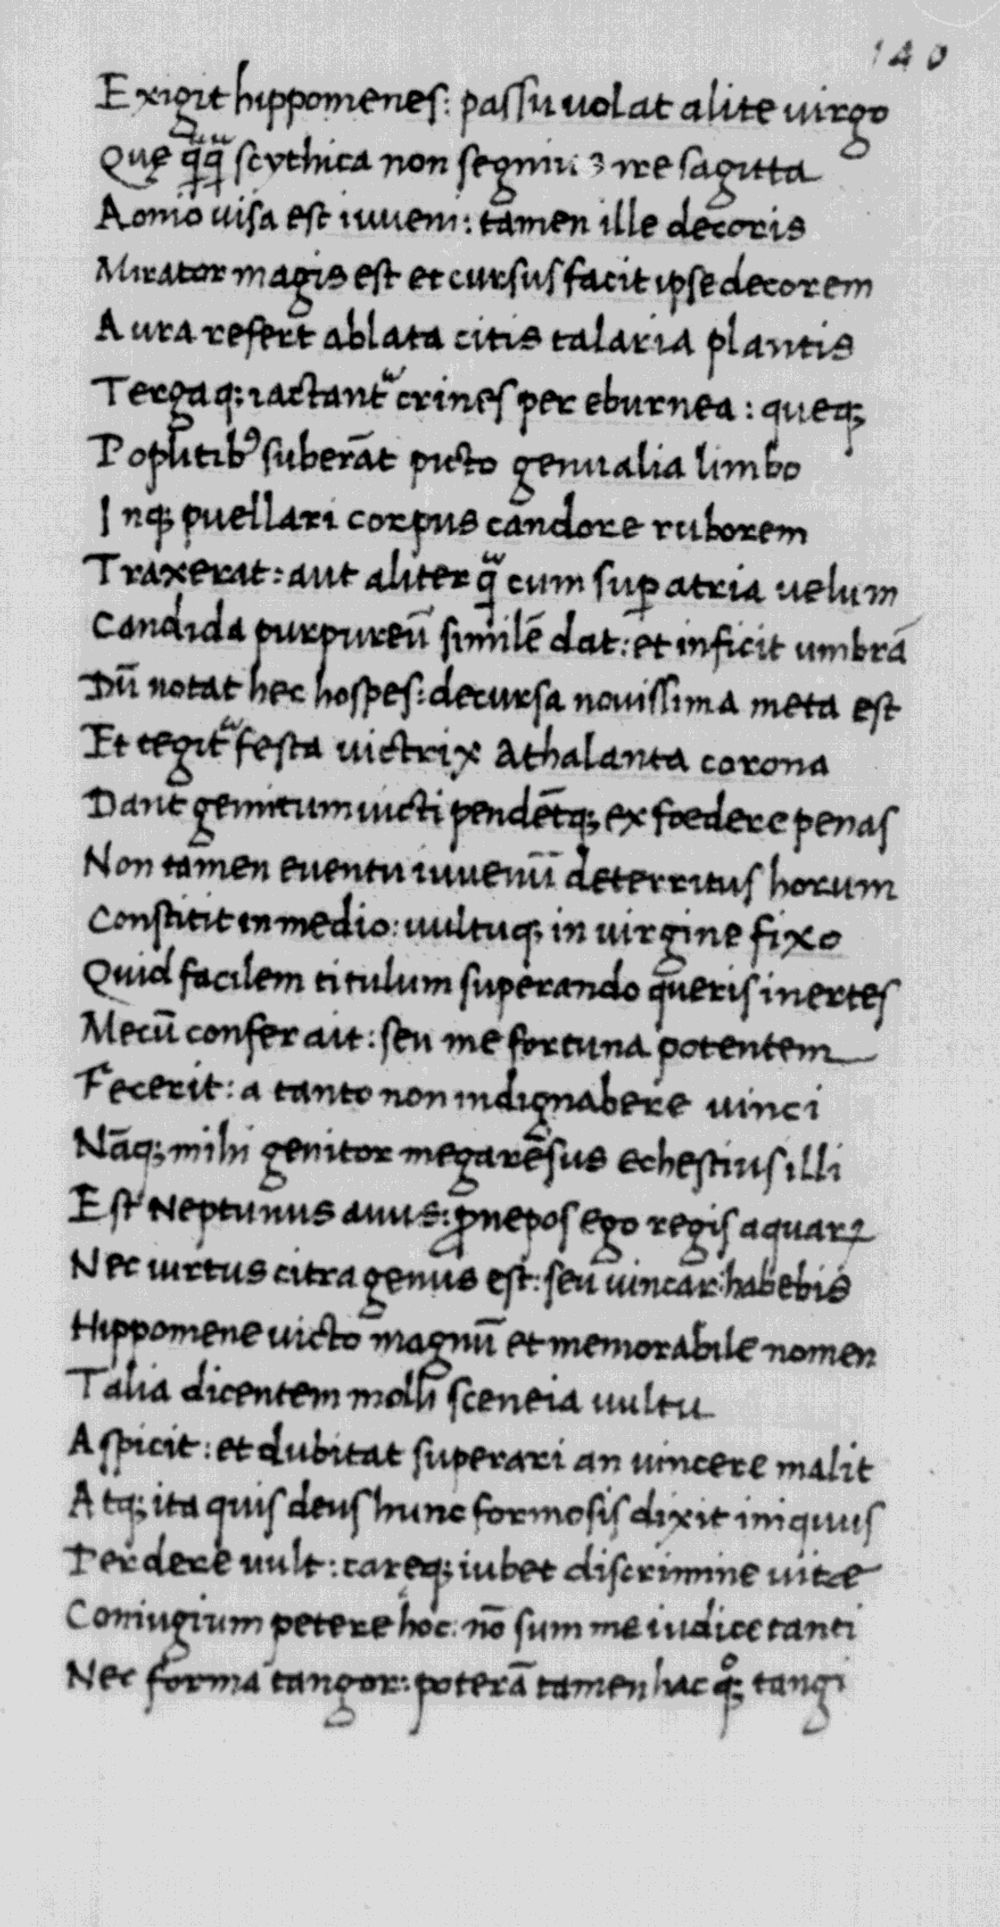 140
Exigit hippomenes: passu uolat alite uirgo
Que q̃q̃ scythica non segniu ire sagitta
Aonio uisa est iuueni: tamen ille decoris
Mirator magis est et cursus facit ipse decorem
Aura refert ablata citis talaria plantis
Tergaq; iactant᷑ crines per eburnea: queq;
Poplitibꝰ suberāt picto genualia limbo
Inq; puellari corpus candore ruborem
Traxerat: aut aliter q̃ cum suꝑ atria uelum
Candida purpureū similē dat: et inficit umbrā
Dū notat hec hospes: decursa nouissima meta est
Et tegit᷑ festa uictrix Athalanta corona
Dant gemitum uicti pendētq; ex foedere penas
Non tamen euentu iuuenū deterritus horum
Constitit in medio: uultuq; in uirgine fixo
Quid facilem titulum superando queris inertes
Mecū confer ait: seu me fortuna potentem
Fecerit: a tanto non indignabere uinci
Nāq; mihi genitor megarēsus echestius illi
Est Neptunus auus: ꝓnepos ego regis aquaꝝ
Nec uirtus citra genus est: seu uincar: habebis
Hippomene uicto magnū et memorabile nomen
Talia dicentem molli sceneia uultu
Aspicit: et dubitat superari an uincere malit
Atq; ita quis deus hunc formosis dixit iniquus
Perdere uult: careq; iubet discrimine uitae
Coniugium petere hoc: nō sum me iudice tanti
Nec forma tangor: poterā tamen hac qͦ; tangi